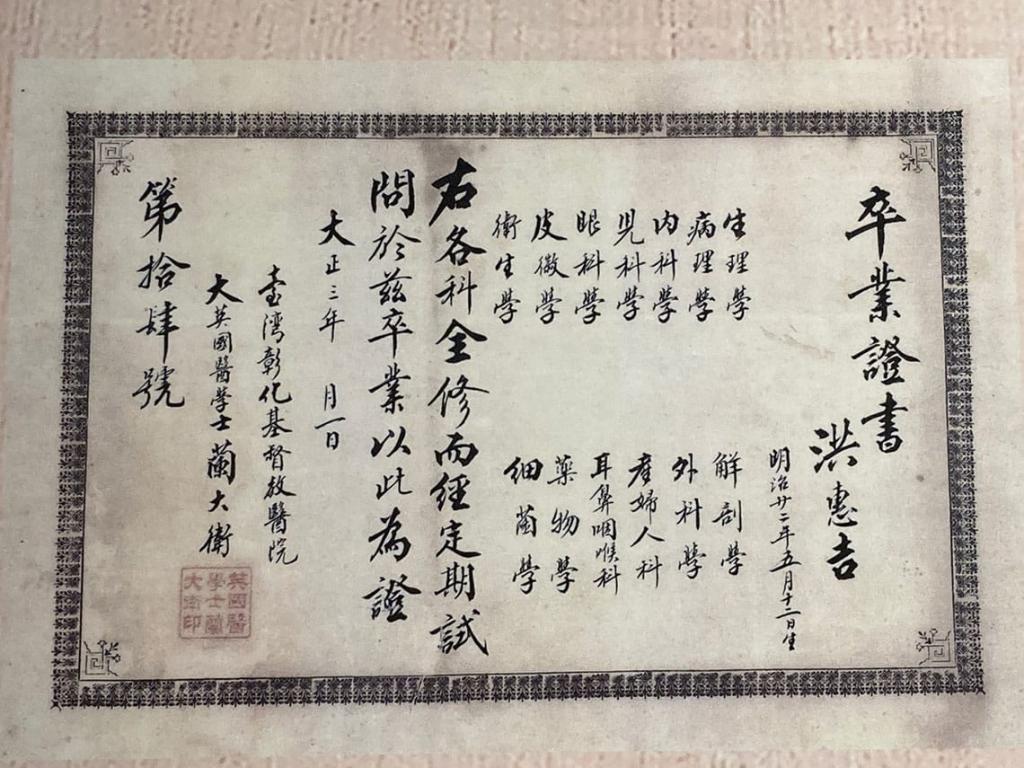 卒業證書
洪惠吉
明治廿二年五月十二日生
生理學 解剖學
病理學 外科學
内科學 產婦人科
児科學 耳鼻咽喉科
眼科學 薬物學
皮黴學 細菌學
衛生學
右各科全修而經定期試
問於茲卒業以此為證
大正三年 月一日
臺湾彰化基督教醫院
大英國醫學士 蘭大衛
英國醫
學士蘭
大衛印
第拾肆號